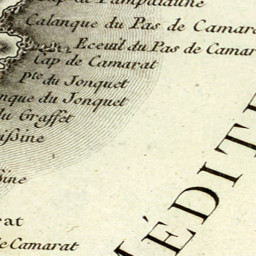 Cap de Pampalaune
Calanque du Pas de Camar
Eceuil du Pas de Camar
Cap de Camarat
pte du Jonquet
nque du Jonquet
du Graffet
issine
ssine
eat
e Camarat
MÉDITE